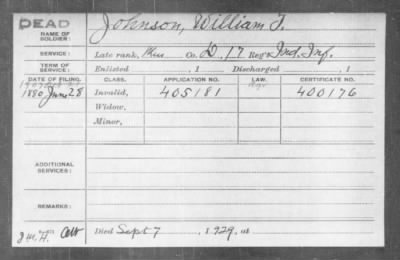 DEAD Johnson, William T.
NAME OF
SOLDIER:
SERVICE: Late rank, Co. D, 17 Reg't Ind. Inf.
TERM OF
SERVICE: Enlisted , 1 Discharged , 1
DATE OF FILING. CLASS. APPLICATION NO. LAW. CERTIFICATE NO.
1907
1880 June 28 Invalid, 405181 400176
Widow,
Minor,
ADDITIONAL
SERVICES:
REMARKS:
Died Sept 7 , 1929, at